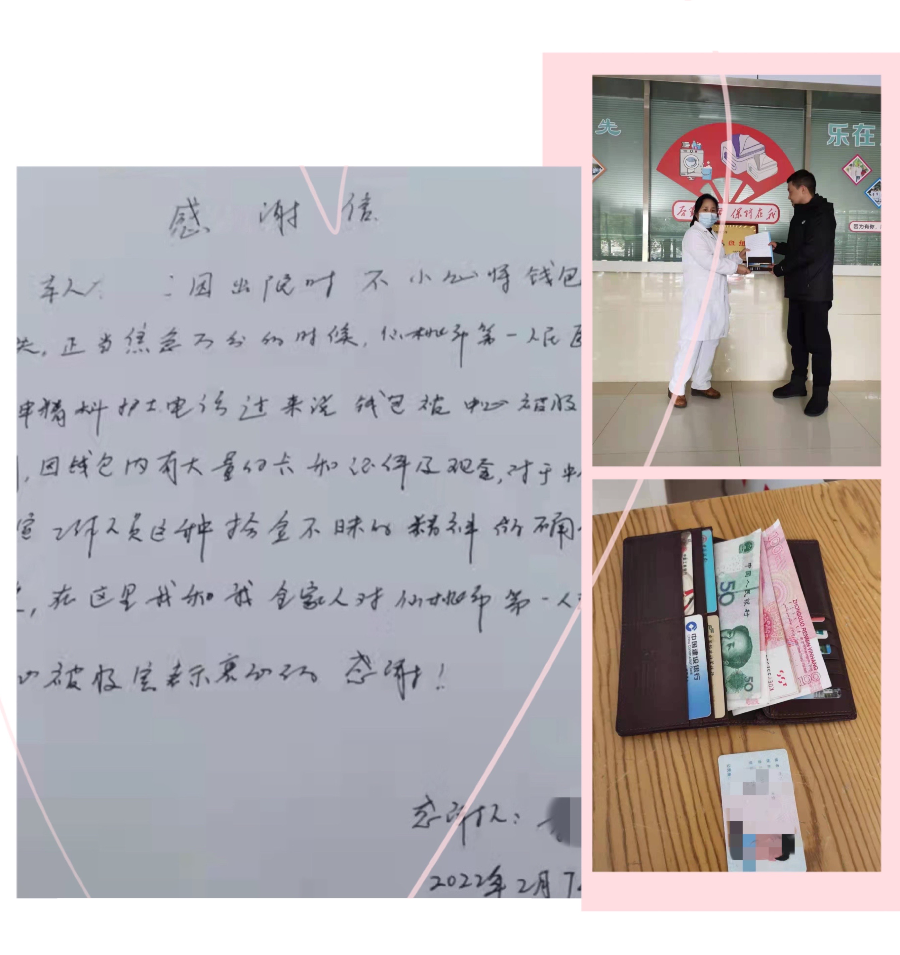 感谢信
本人 因出院时不小心将钱包
失,正当焦急万分的时候,仙桃市第一人民医
申精科护士电话过来说钱包被中心被服
,因钱包内有大量的卡和证件及现金,对于中心
室工作人员这种拾金不昧的精神的确
,在这里我和我全家人对仙桃市第一人
心被服室表示衷心的感谢!
感谢人:
2022年2月7
先
乐在
保持在我
中国人民银行
50
50
ZHONGGUO RENMIN YINHANG
中国建设银行